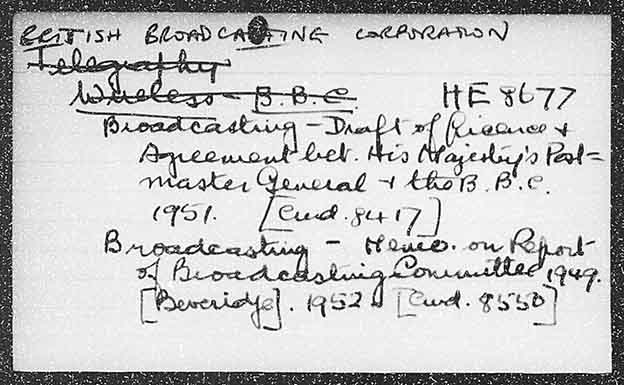 BRITISH BROADCASTING CORPORATION
Telegraphy
Wireless - B.B.C. HE 8677
Broadcasting - Draft of Licence &
Agreement bet. His Majesty's Post=
master General & the B.B.C.
1951. [Cmd. 8417]
Broadcasting - Memo. on Report
of Broadcasting Committee 1949.
[Beveridge]. 1952. [Cmd. 8550]